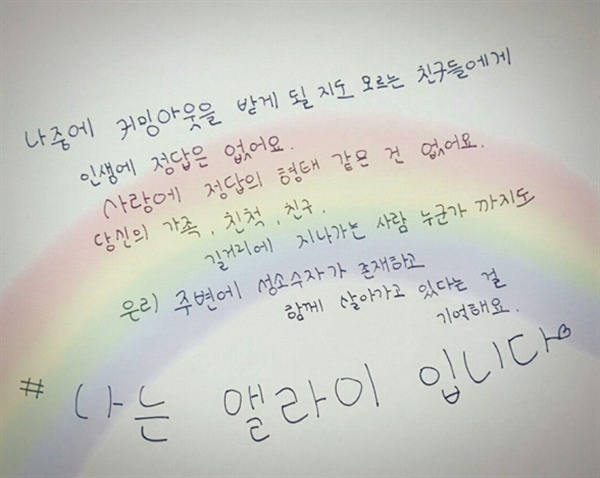 나중에 커밍아웃을 받게 될 지도 모르는 친구들에게
인생에 정답은 없어요.
사랑에 정답의 형태 같은 건 없어요.
당신의 가족, 친척, 친구.
길거리에 지나가는 사람 누군가 까지도
우리 주변에 성소수자가 존재하고
함께 살아가고 있다는 걸
기억해요.
# 나는 앨라이 입니다